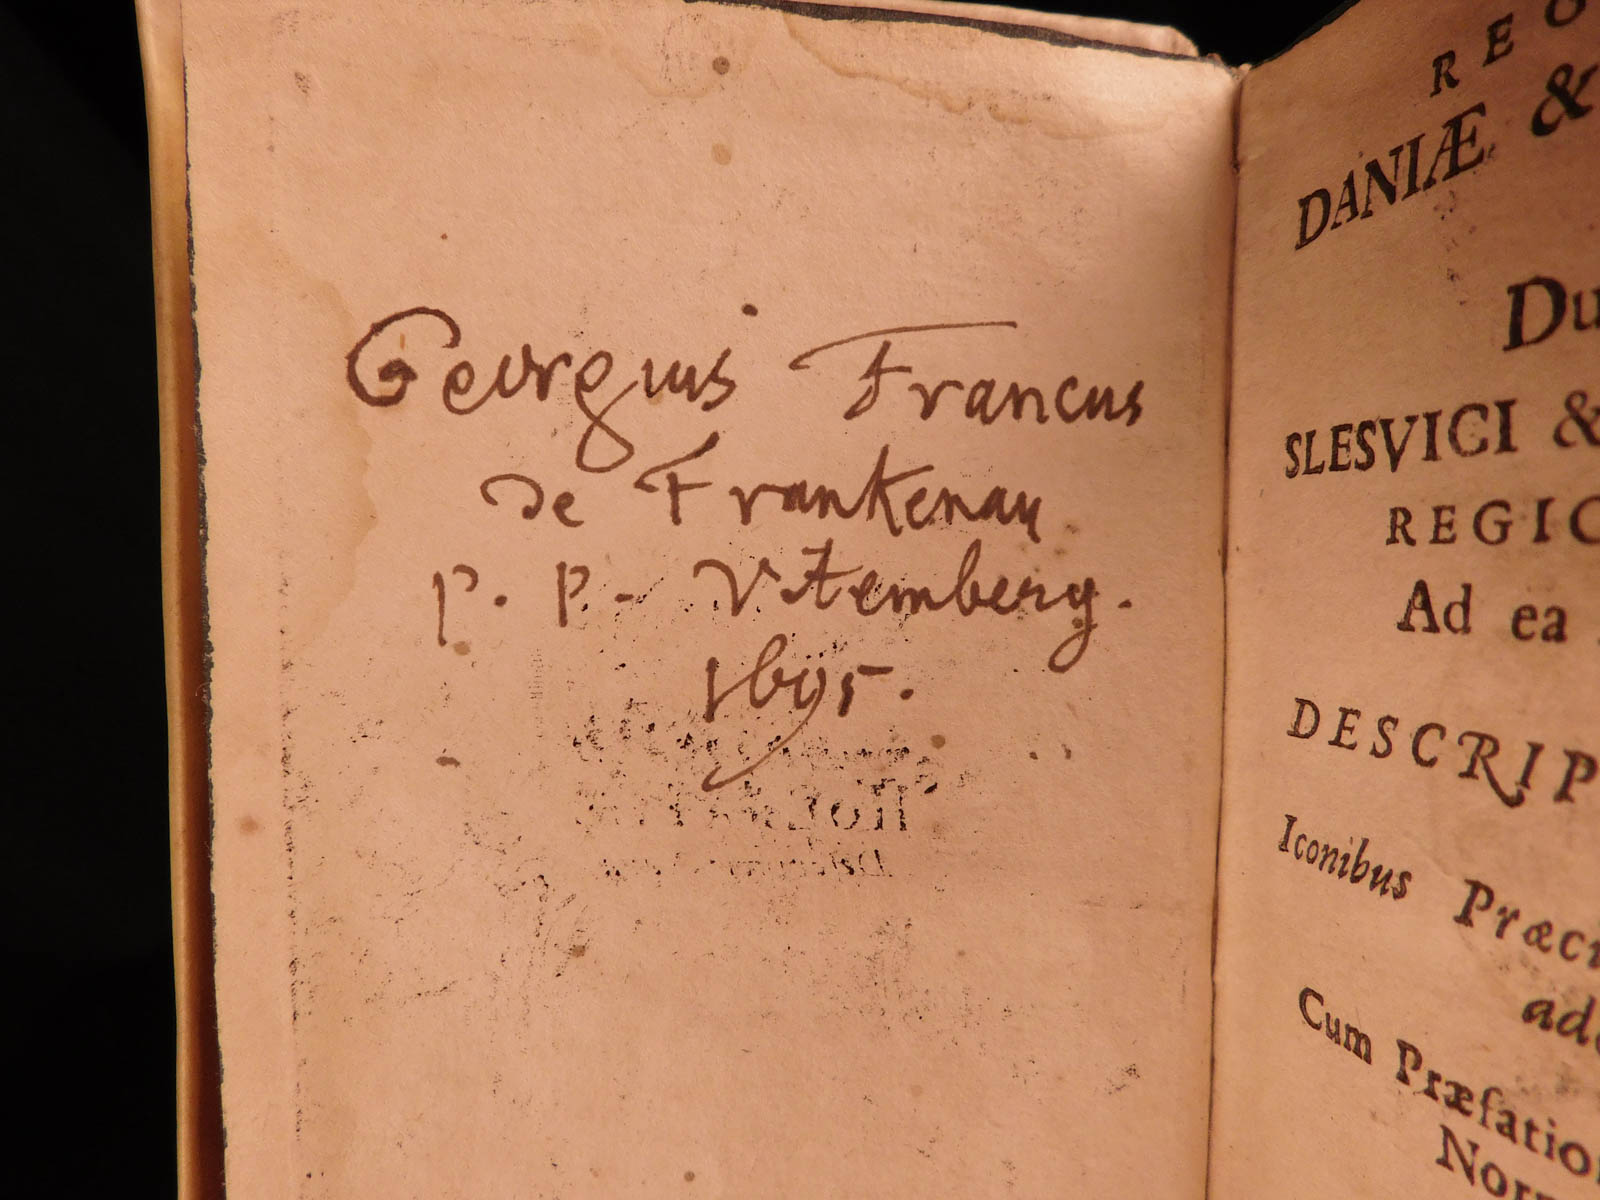 Georgius Francus
de Frankenau
P. P. Vitemberg.
1695.
REG
DANIÆ &
Du
SLESVICI &
REGIO
Ad ea
DESCRIP
Iconibus Præci
ade
Cum Præfatio
Nor